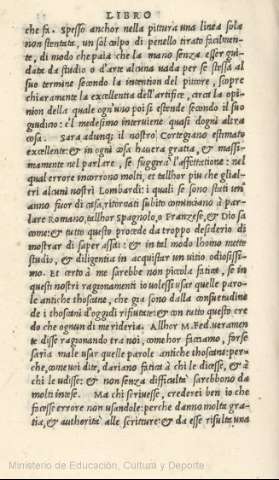 LIBRO
che fa. Spesso anchor nella pittura una linea sola
non stentata, un sol colpo di penello tirato facilmen‑
te, di modo che paia che la mano senza esser gui‑
data da studio o d'arte alcuna uada per se stessa al
suo termine secondo la intention del pittore, scopre
chiaramente la eccellentia dell'artifice, circa la opi‑
nion della quale ogn'uno poi se estende secondo il suo
giudicio: e'l medesimo interuiene quasi d'ogni altra
cosa. Sara adunq; il nostro Cortegiano estimato
excellente: & in ogni cosa hauera gratia, & massi‑
mamente nel parlare, se fuggirà l'affettatione: nel
qual errore incorrono molti, et tallhor piu che gli al‑
tri alcuni nostri Lombardi: i quali se sono stati un'
anno fuor di casa, ritornati subito cominciano à par‑
lare Romano, tallhor Spagnolo, o Franzese, & Dio sa
come: & tutto questo procede da troppo desiderio di
mostrar di saper assai: & in tal modo l'homo mette
studio, & diligentia in acquistar un uitio odiosissi‑
mo. Et certo à me sarebbe non piccola fatica, se in
questi nostri ragionamenti io uolessi usar quelle paro‑
le antiche thoscane, che gia sono dalla consuetudine
de i thoscani d'oggidi rifiutate: & con tutto questo cre
do che ognun di me rideria. Allhor M. Fed. ueramen
te disse ragionando tra noi, come hor facciamo, forse
saria male usar quelle parole antiche thoscane: per‑
che, come uoi dite, dariano fatica à chi le dicesse, & à
chi le udisse: & non senza difficultà sarebbono da
molti intese. Ma chi scriuesse, crederei ben io che
facesse errore non usandole: perche danno molta gra‑
tia, & authorità alle scritture: & da esse risulta una
Ministerio de Educación, Cultura y Deporte